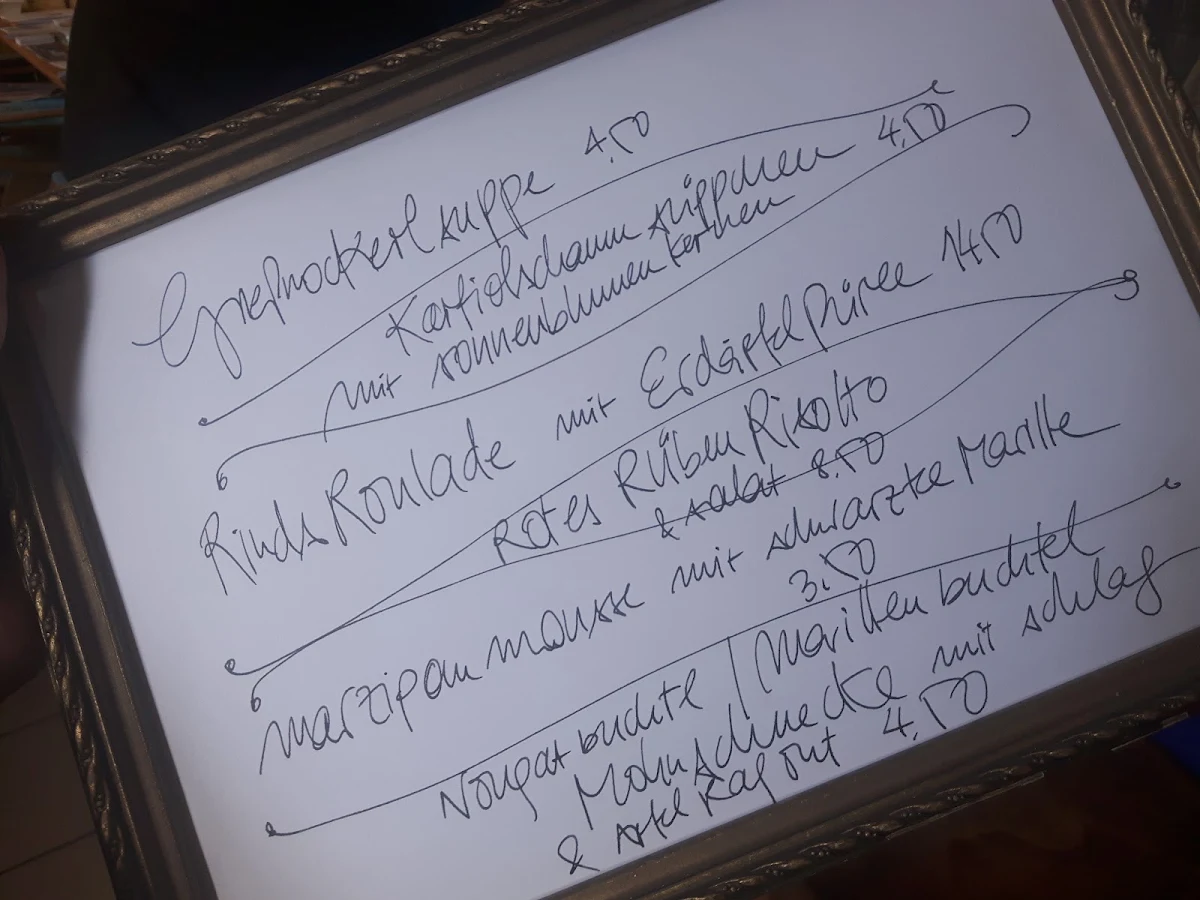 Grießnockerlsuppe 4,50
Karfiolschaumsüppchen 4,50
mit sonnenblumenkernen
RindsRoulade mit ErdäpfelPüree 14,50
Rotes RübenRisotto
& salat 8.50
marzipanmousse mit schwarzke Marille
3.50
Nougatbuchtel / Marillenbuchtel
Mohnschnecke mit schlag
& Apfelragout 4,50